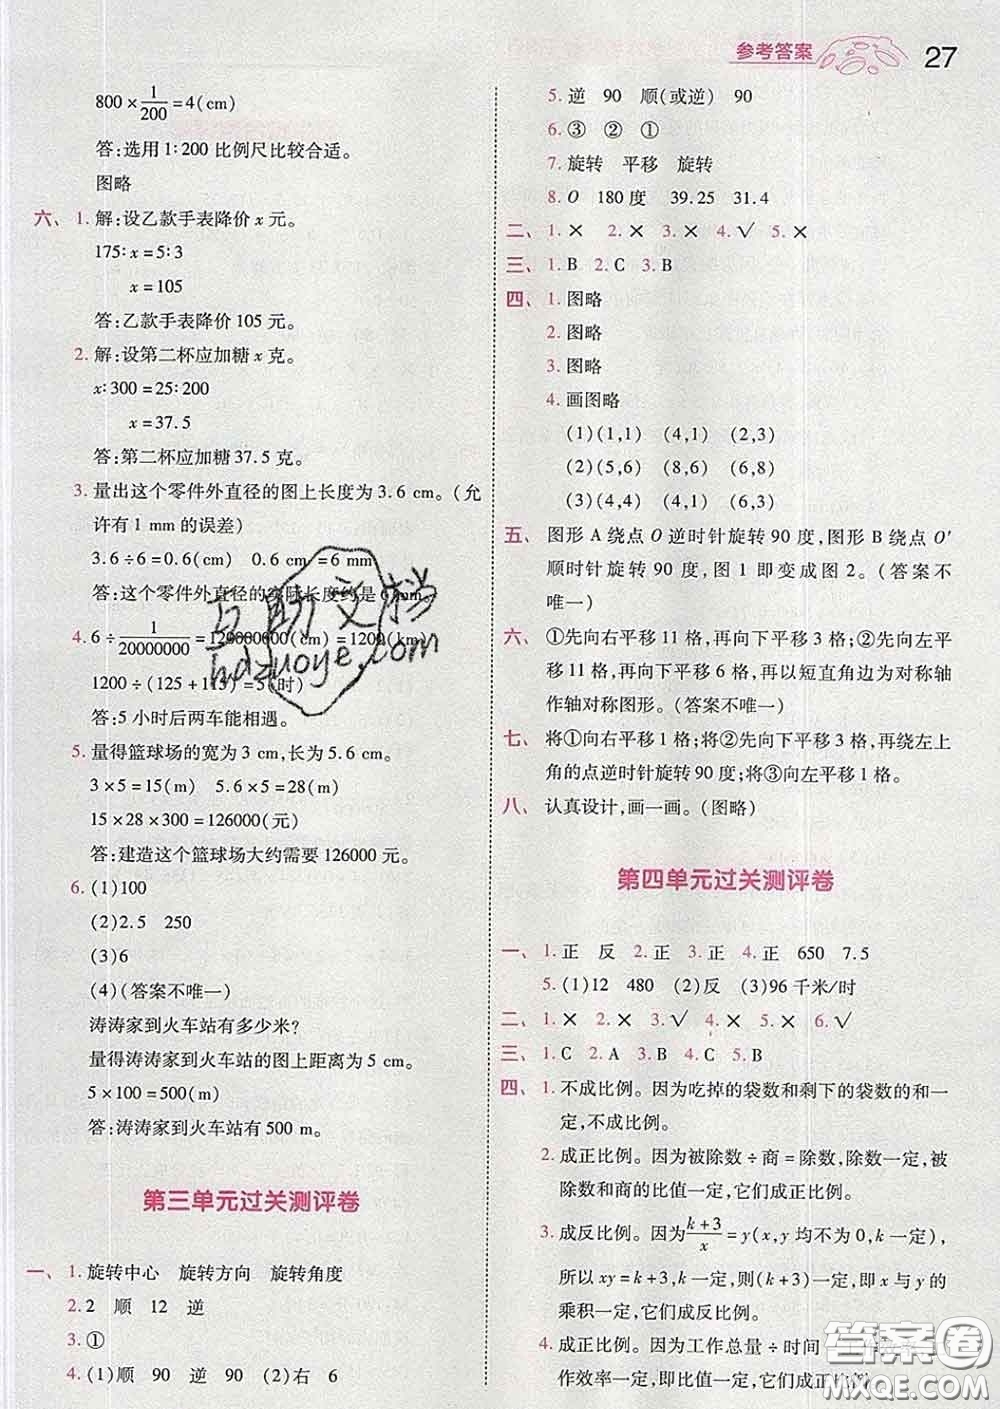 参考答案 27
800×1/200=4(cm)
答:选用1∶200比例尺比较合适。
图略
六、1. 解:设乙款手表降价x元。
175∶x=5∶3
x=105
答:乙款手表降价105元。
2. 解:设第二杯应加糖x克。
x∶300=25∶200
x=37.5
答:第二杯应加糖37.5克。
3. 量出这个零件外直径的图上长度为3.6 cm。(允
许有1 mm的误差)
3.6÷6=0.6(cm) 0.6 cm=6 mm
答:这个零件外直径的实际长度约是6 mm。
4. 6÷1/20000000=120000000(cm)=1200(km)
1200÷(125+115)=5(时)
答:5小时后两车能相遇。
5. 量得篮球场的宽为3 cm,长为5.6 cm。
3×5=15(m) 5.6×5=28(m)
15×28×300=126000(元)
答:建造这个篮球场大约需要126000元。
6. (1)100
(2)2.5 250
(3)6
(4)(答案不唯一)
涛涛家到火车站有多少米?
量得涛涛家到火车站的图上距离为5 cm。
5×100=500(m)
答:涛涛家到火车站有500 m。
第三单元过关测评卷
一、1. 旋转中心 旋转方向 旋转角度
2. 2 顺 12 逆
3. ①
4. (1)顺 90 逆 90 (2)右 6
5. 逆 90 顺(或逆) 90
6. ③ ② ①
7. 旋转 平移 旋转
8. O 180度 39.25 31.4
二、1. × 2. × 3. × 4. √ 5. ×
三、1. B 2. C 3. B
四、1. 图略
2. 图略
3. 图略
4. 画图略
(1)(1,1) (4,1) (2,3)
(2)(5,6) (8,6) (6,8)
(3)(4,4) (4,1) (6,3)
五、图形A绕点O逆时针旋转90度,图形B绕点O′
顺时针旋转90度,图1即变成图2。(答案不
唯一)
六、①先向右平移11格,再向下平移3格;②先向左平
移10格,再向下平移6格,再以短直角边为对称轴
作轴对称图形。(答案不唯一)
七、将①向右平移1格;将②先向右平移3格,再绕左上
角的点逆时针旋转90度;将③向左平移1格。
八、认真设计,画一画。(图略)
第四单元过关测评卷
一、1. 正 反 2. 正 3. 正 4. 正 650 7.5
5. (1)12 480 (2)反 (3)96千米/时
二、1. × 2. × 3. √ 4. × 5. × 6. √
三、1. C 2. A 3. B 4. C 5. B
四、1. 不成比例。因为吃掉的袋数和剩下的袋数的和一
定,不成比例。
2. 成正比例。因为被除数÷商=除数,除数一定,被
除数和商的比值一定,它们成正比例。
3. 成反比例。因为k+3/x=y(x,y均不为0,k一定),
所以xy=k+3,k一定,则(k+3)一定,即x与y的
乘积一定,它们成反比例。
4. 成正比例。因为工作总量÷时间
作效率一定,即一定,它们成正比例
百助文档
hdzuoye.com
答案圈
MXQE.COM